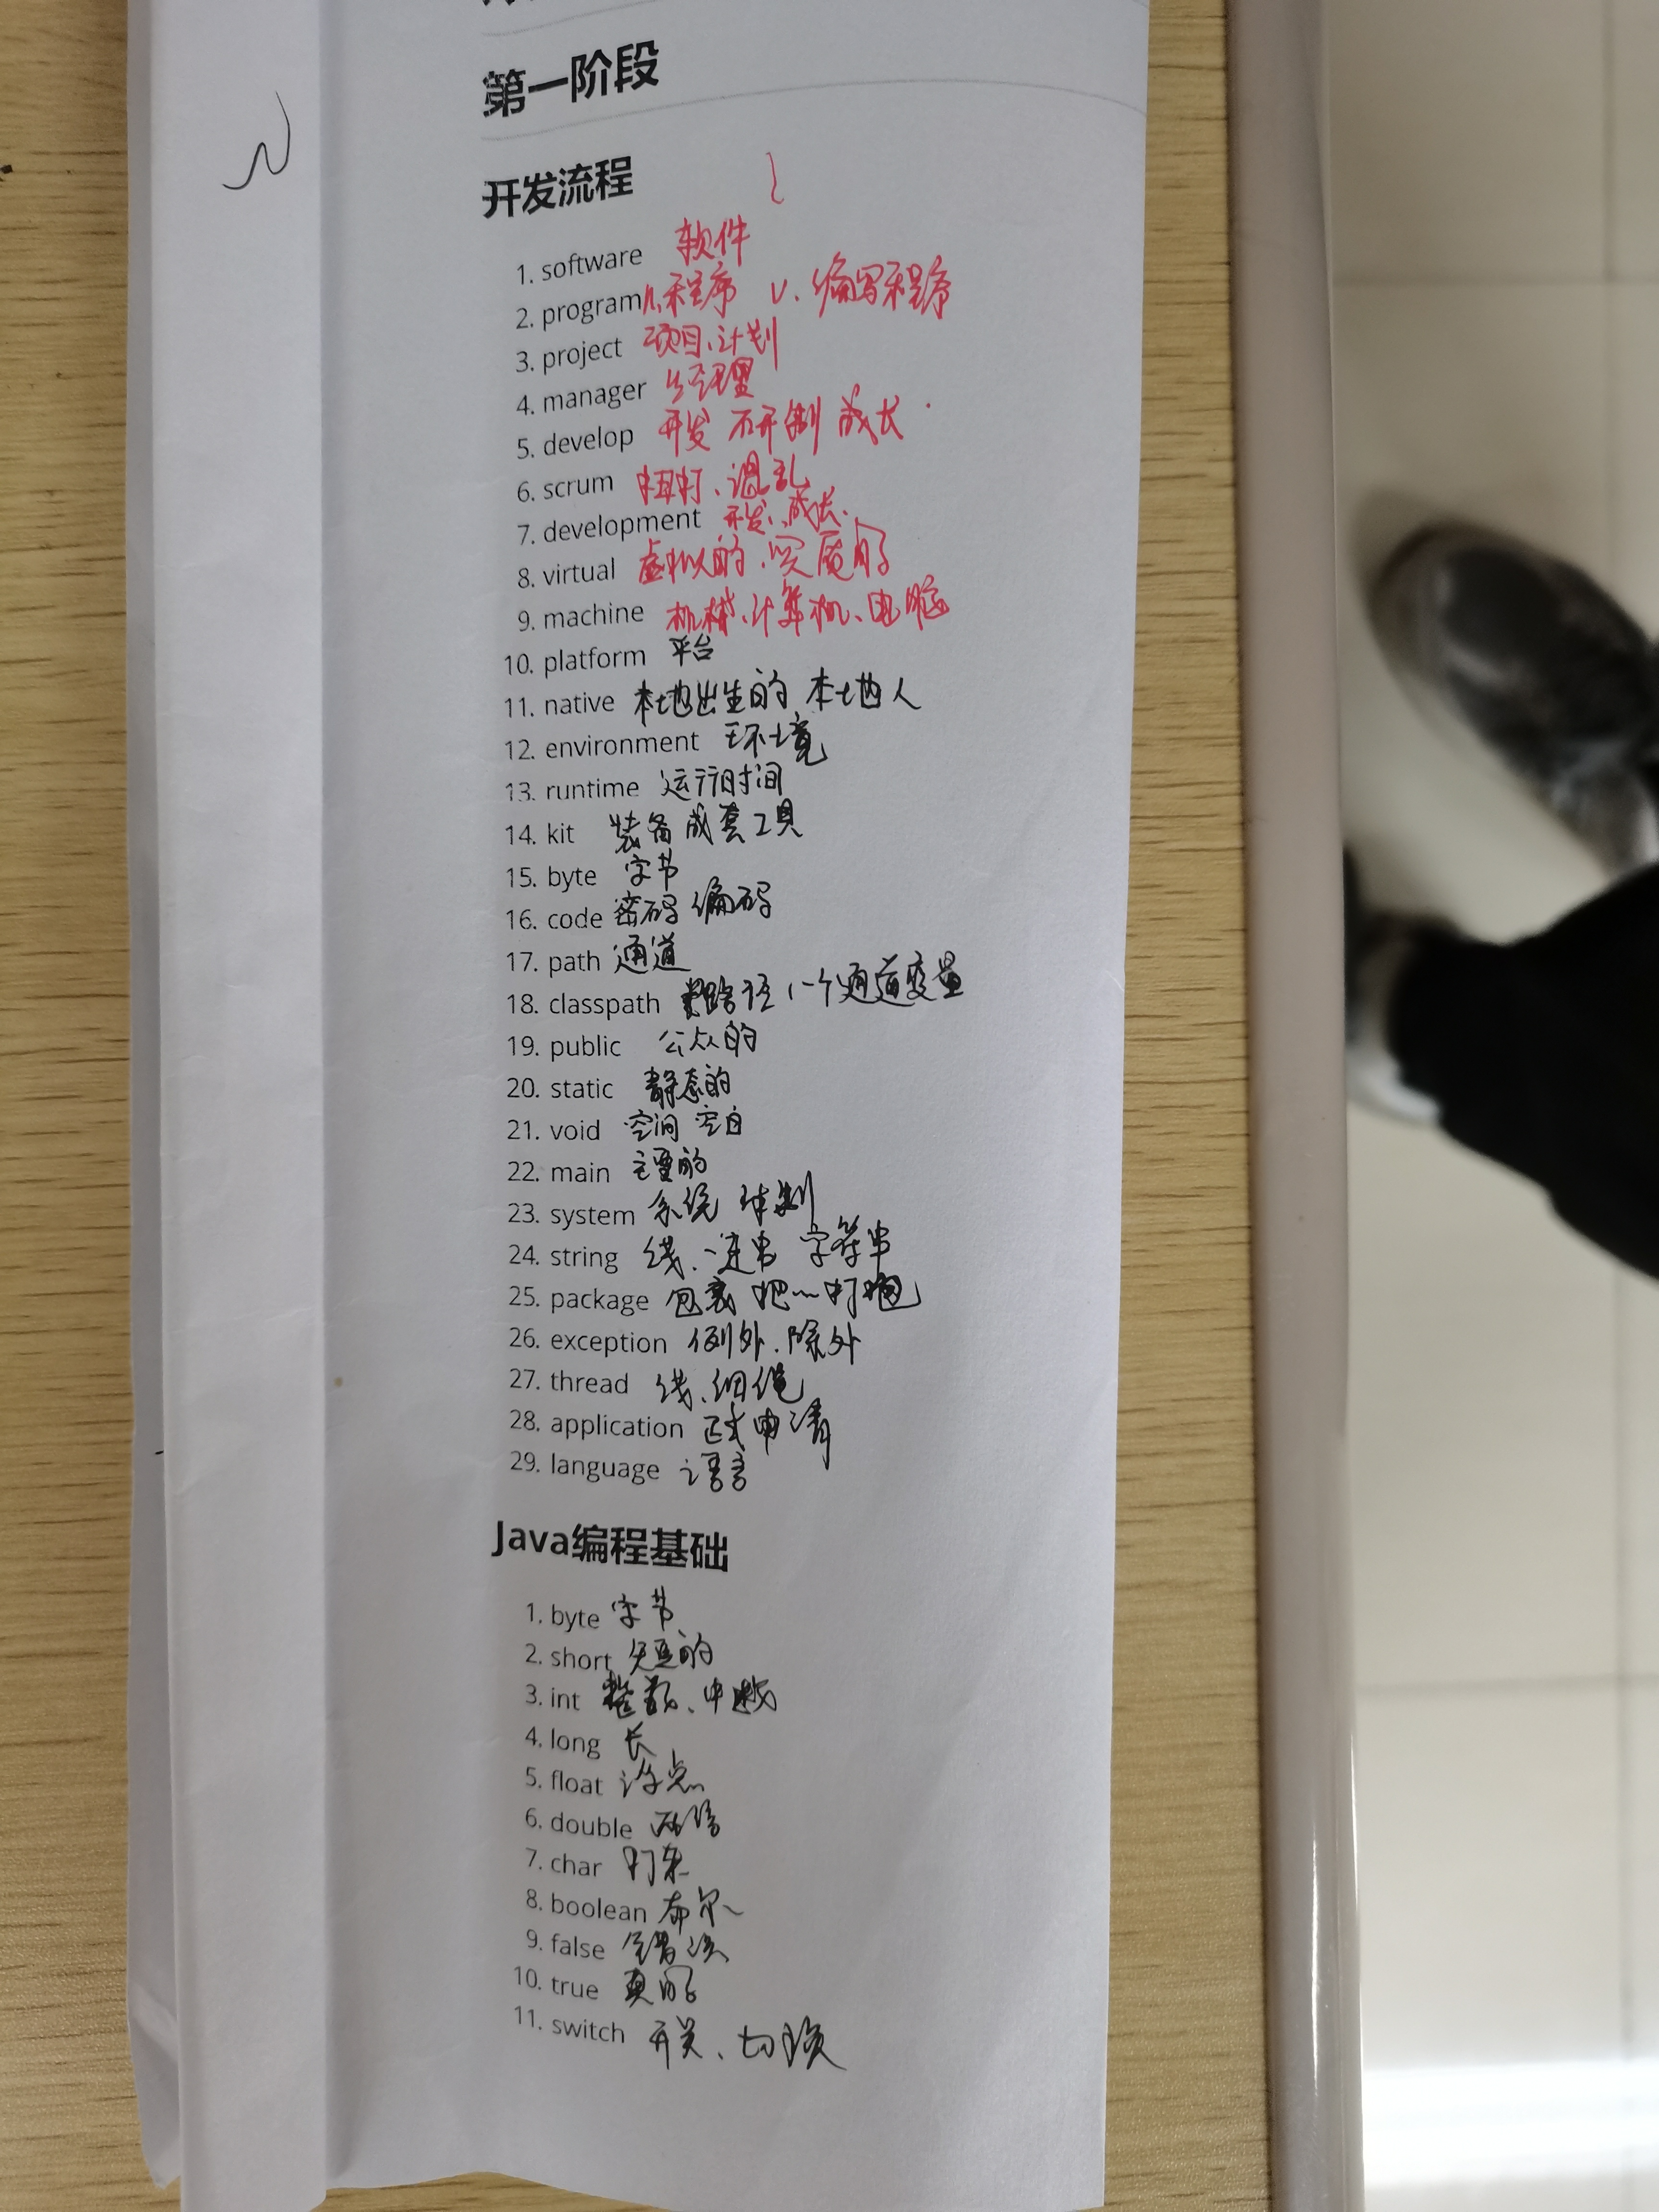 第一阶段
开发流程
1. software 软件
2. program n.程序 v.编写程序
3. project 项目、计划
4. manager 经理
5. develop 开发 研制 成长
6. scrum 扭打、混乱
7. development 开发、成长.
8. virtual 虚拟的、实质的
9. machine 机械、计算机、电脑
10. platform 平台
11. native 本地出生的 本地人
12. environment 环境
13. runtime 运行时间
14. kit 装备 成套工具
15. byte 字节
16. code 密码 编码
17. path 通道
18. classpath 类路径 一个通道变量
19. public 公众的
20. static 静态的
21. void 空间 空白
22. main 主要的
23. system 系统 体制
24. string 线、一连串 字符串
25. package 包裹 把~打包
26. exception 例外、除外
27. thread 线、细绳
28. application 正式申请
29. language 语言
Java编程基础
1. byte 字节
2. short 短的
3. int 整数、中断
4. long 长
5. float 浮点
6. double 两倍
7. char 打杂
8. boolean 布尔~
9. false 错误
10. true 真的
11. switch 开关、切换